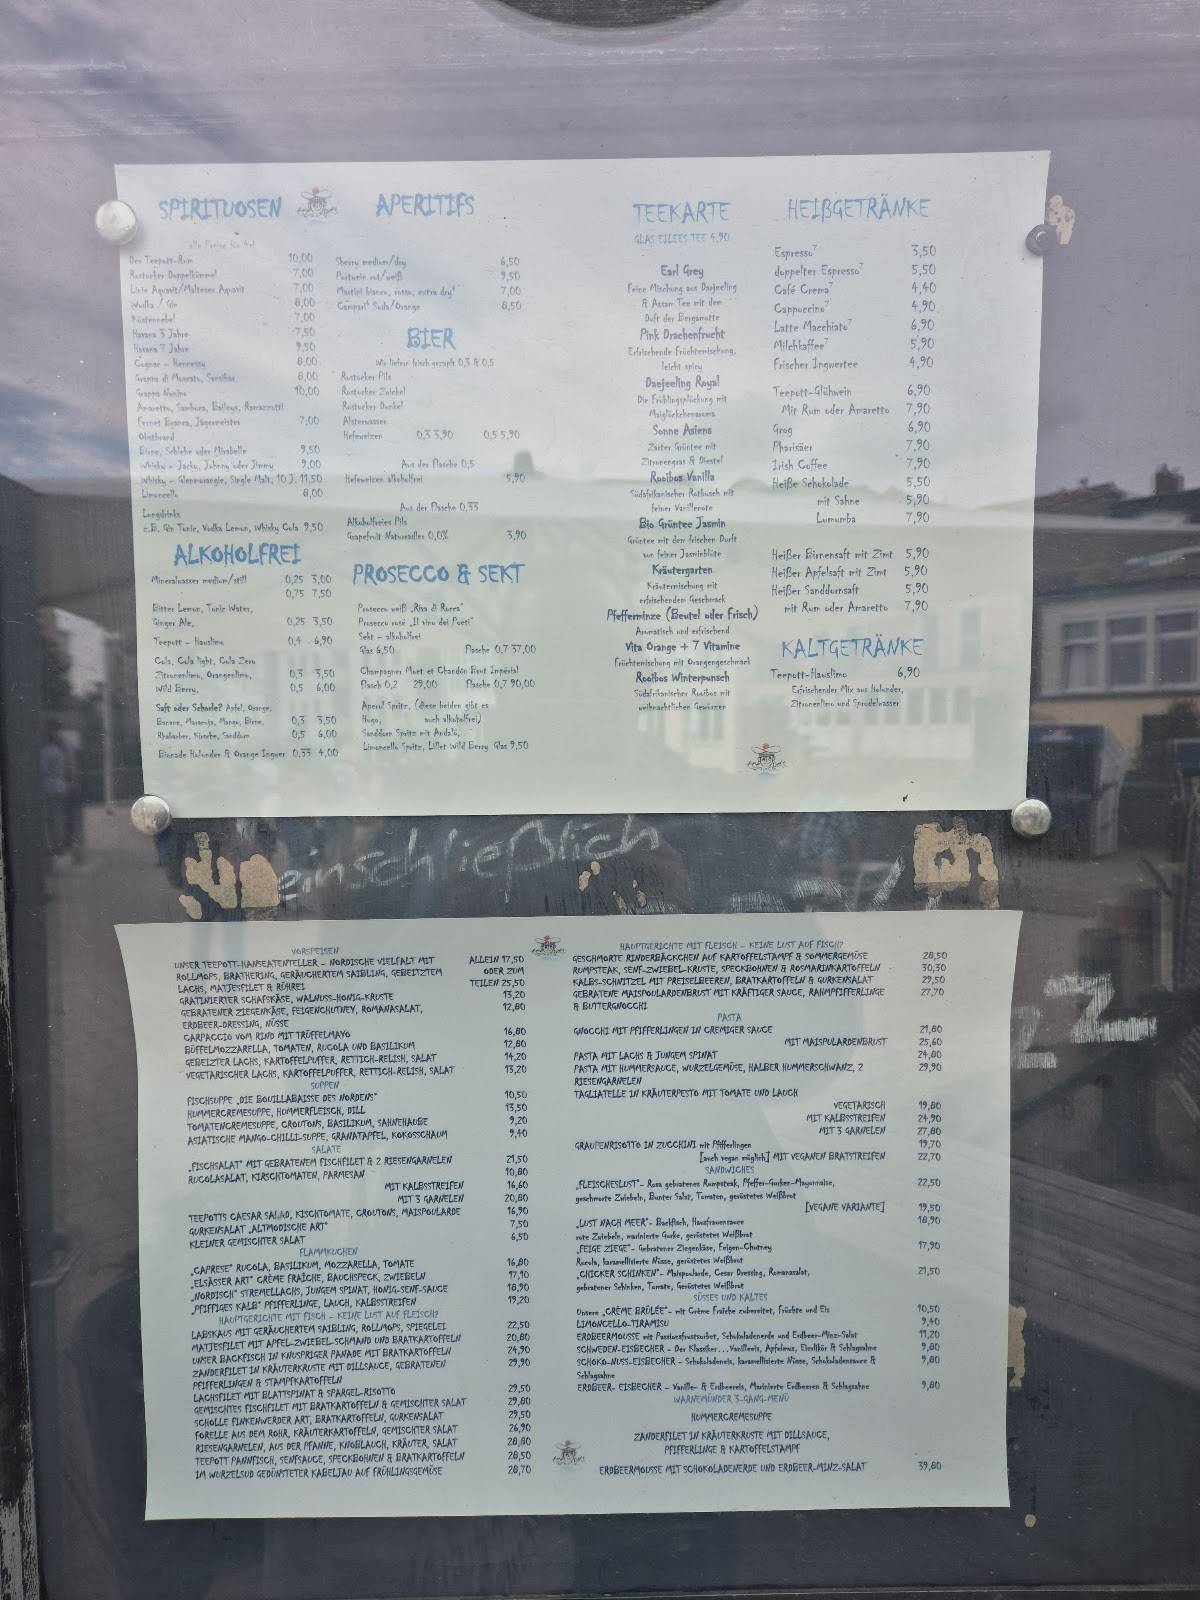 SPIRITUOSEN
alle Preise für 4cl
Der Teepott-Rum 10,00
Rostocker Doppelkümmel 7,00
Linie Aquavit/Malteser Aquavit 7,00
Wodka / Gin 8,00
Küstennebel 7,00
Havana 3 Jahre 7,50
Havana 7 Jahre 9,50
Cognac – Hennessy 8,00
Grappa di Moscato, Sansibar 8,00
Grappa Nonino 10,00
Amaretto, Sambuca, Baileys, Ramazzotti
Fernet Branca, Jägermeister 7,00
Obstbrand
Birne, Schlehe oder Mirabelle 9,50
Whisky – Jacky, Johnny oder Jimmy 9,00
Whisky – Glenmorangie, Single Malt, 10 J. 11,50
Limoncello 8,00
Longdrinks
z.B. Gin Tonic, Vodka Lemon, Whisky Cola 9,50
ALKOHOLFREI
Mineralwasser medium/still 0,25 3,00
0,75 7,50
Bitter Lemon, Tonic Water,
Ginger Ale, 0,25 3,50
Teepott – Hauslimo 0,4 6,90
Cola, Cola light, Cola Zero
Zitronenlimo, Orangenlimo, 0,3 3,50
Wild Berry, 0,5 6,00
Saft oder Schorle? Apfel, Orange,
Banane, Maracuja, Mango, Birne, 0,3 3,50
Rhabarber, Kirsche, Sanddorn 0,5 6,00
Bionade Holunder & Orange Ingwer 0,33 4,00
APERITIFS
Sherry medium/dry 6,50
Portwein rot/weiß 9,50
Martini bianco, rosso, extra dry⁴ 7,00
Campari⁴ Soda/Orange 8,50
BIER
Wir liefern frisch gezapft 0,3 & 0,5
Rostocker Pils
Rostocker Zwickel
Rostocker Dunkel
Alsterwasser
Hefeweizen 0,3 3,90 0,5 5,90
Aus der Flasche 0,5
Hefeweizen alkoholfrei 5,90
Aus der Flasche 0,33
Alkoholfreies Pils
Grapefruit Naturradler 0,0% 3,90
PROSECCO & SEKT
Prosecco weiß „Riva di Rocca“
Prosecco rosé „Il vino dei Poeti“
Sekt – alkoholfrei
Glas 6,50 Flasche 0,7 37,00
Champagner Moet et Chandón Brut Impérial
Flasch 0,2 29,00 Flasche 0,7 90,00
Aperol Spritz, (diese beiden gibt es
Hugo, auch alkoholfrei)
Sanddorn Spritz mit Andalö,
Limoncello Spritz, Lillet Wild Berry Glas 9,50
TEEKARTE
GLAS EILLES TEE 4,90
Earl Grey
Feine Mischung aus Darjeeling
& Assam Tee mit dem
Duft der Bergamotte
Pink Drachenfrucht
Erfrischende Früchtemischung,
leicht spicy
Daejeeling Royal
Die Frühlingspflückung mit
Maiglöckchenaroma
Sonne Asiens
Zarter Grüntee mit
Zitronengras & Distel
Rooibos Vanilla
Südafrikanischer Rotbusch mit
feiner Vanillenote
Bio Grüntee Jasmin
Grüntee mit dem frischen Durft
von feiner Jasminblüte
Kräutergarten
Kräutermischung mit
erfrischendem Geschmack
Pfefferminze (Beutel oder Frisch)
Aromatisch und erfrischend
Vita Orange + 7 Vitamine
Früchtemischung mit Orangengeschmack
Rooibos Winterpunsch
Südafrikanischer Rooibos mit
weihnachtlichen Gewürzen
HEIßGETRÄNKE
Espresso⁷ 3,50
doppelter Espresso⁷ 5,50
Café Crema⁷ 4,40
Cappuccino⁷ 4,90
Latte Macchiato⁷ 6,90
Milchkaffee⁷ 5,90
Frischer Ingwertee 4,90
Teepott-Glühwein 6,90
Mit Rum oder Amaretto 7,90
Grog 6,90
Pharisäer 7,90
Irish Coffee 7,90
Heiße Schokolade 5,50
mit Sahne 5,90
Lumumba 7,90
Heißer Birnensaft mit Zimt 5,90
Heißer Apfelsaft mit Zimt 5,90
Heißer Sanddornsaft 5,90
mit Rum oder Amaretto 7,90
KALTGETRÄNKE
Teepott-Hauslimo 6,90
Erfrischender Mix aus Holunder,
Zitronenlimo und Sprudelwasser
einschließlich
VORSPEISEN
UNSER TEEPOTT-HANSEATENTELLER – NORDISCHE VIELFALT MIT ALLEIN 17,50
ROLLMOPS, BRATHERING, GERÄUCHERTEM SAIBLING, GEBEIZTEM ODER ZUM
LACHS, MATJESFILET & RÜHREI TEILEN 25,50
GRATINIERTER SCHAFSKÄSE, WALNUSS-HONIG-KRUSTE 13,20
GEBRATENER ZIEGENKÄSE, FEIGENCHUTNEY, ROMANASALAT, 12,80
ERDBEER-DRESSING, NÜSSE
CARPACCIO VOM RIND MIT TRÜFFELMAYO 16,80
BÜFFELMOZZARELLA, TOMATEN, RUCOLA UND BASILIKUM 12,80
GEBEIZTER LACHS, KARTOFFELPUFFER, RETTICH-RELISH, SALAT 14,20
VEGETARISCHER LACHS, KARTOFFELPUFFER, RETTICH-RELISH, SALAT 13,20
SUPPEN
FISCHSUPPE „DIE BOUILLABAISSE DES NORDENS“ 10,50
HUMMERCREMESUPPE, HUMMERFLEISCH, DILL 13,50
TOMATENCREMESUPPE, CROUTONS, BASILIKUM, SAHNEHAUBE 9,20
ASIATISCHE MANGO-CHILLI-SUPPE, GRANATAPFEL, KOKOSSCHAUM 9,40
SALATE
„FISCHSALAT“ MIT GEBRATENEM FISCHFILET & 2 RIESENGARNELEN 21,50
RUCOLASALAT, KIRSCHTOMATEN, PARMESAN 10,80
MIT KALBSSTREIFEN 16,60
MIT 3 GARNELEN 20,80
TEEPOTTS CAESAR SALAD, KISCHTOMATE, CROUTONS, MAISPOULARDE 16,90
GURKENSALAT „ALTMODISCHE ART“ 7,50
KLEINER GEMISCHTER SALAT 6,50
FLAMMKUCHEN
„CAPRESE“ RUCOLA, BASILIKUM, MOZZARELLA, TOMATE 16,80
„ELSÄSSER ART“ CRÈME FRAÎCHE, BAUCHSPECK, ZWIEBELN 17,10
„NORDISCH“ STREMELLACHS, JUNGEM SPINAT, HONIG-SENF-SAUCE 18,90
„PFIFFIGES KALB“ PFIFFERLINGE, LAUCH, KALBSSTREIFEN 19,20
HAUPTGERICHTE MIT FISCH – KEINE LUST AUF FLEISCH?
LABSKAUS MIT GERÄUCHERTEM SAIBLING, ROLLMOPS, SPIEGELEI 22,50
MATJESFILET MIT APFEL-ZWIEBEL-SCHMAND UND BRATKARTOFFELN 20,80
UNSER BACKFISCH IN KNUSPRIGER PANADE MIT BRATKARTOFFELN 24,90
ZANDERFILET IN KRÄUTERKRUSTE MIT DILLSAUCE, GEBRATENEN 29,90
PFIFFERLINGEN & STAMPFKARTOFFELN
LACHSFILET MIT BLATTSPINAT & SPARGEL-RISOTTO 29,50
GEMISCHTES FISCHFILET MIT BRATKARTOFFELN & GEMISCHTER SALAT 29,80
SCHOLLE FINKENWERDER ART, BRATKARTOFFELN, GURKENSALAT 29,50
FORELLE AUS DEM ROHR, KRÄUTERKARTOFFELN, GEMISCHTER SALAT 26,90
RIESENGARNELEN, AUS DER PFANNE, KNOBLAUCH, KRÄUTER, SALAT 28,80
TEEPOTT PANNFISCH, SENFSAUCE, SPECKBOHNEN & BRATKARTOFFELN 28,50
IM WURZELSUD GEDÜNSTETER KABELJAU AUF FRÜHLINGSGEMÜSE 28,70
HAUPTGERICHTE MIT FLEISCH – KEINE LUST AUF FISCH?
GESCHMORTE RINDERBÄCKCHEN AUF KARTOFFELSTAMPF & SOMMERGEMÜSE 28,50
RUMPSTEAK, SENF-ZWIEBEL-KRUSTE, SPECKBOHNEN & ROSMARINKARTOFFELN 30,30
KALBS-SCHNITZEL MIT PREISELBEEREN, BRATKARTOFFELN & GURKENSALAT 29,50
GEBRATENE MAISPOULARDENBRUST MIT KRÄFTIGER SAUCE, RAHMPFIFFERLINGE 27,70
& BUTTERGNOCCHI
PASTA
GNOCCHI MIT PFIFFERLINGEN IN CREMIGER SAUCE 21,80
MIT MAISPULARDENBRUST 25,60
PASTA MIT LACHS & JUNGEM SPINAT 24,80
PASTA MIT HUMMERSAUCE, WURZELGEMÜSE, HALBER HUMMERSCHWANZ, 2 29,90
RIESENGARNELEN
TAGLIATELLE IN KRÄUTERPESTO MIT TOMATE UND LAUCH
VEGETARISCH 19,80
MIT KALBSSTREIFEN 24,90
MIT 3 GARNELEN 27,80
GRAUPENRISOTTO IN ZUCCHINI mit Pfifferlingen 19,70
[auch vegan möglich] MIT VEGANEN BRATSTREIFEN 22,70
SANDWICHES
„FLEISCHESLUST“- Rosa gebratenes Rumpsteak, Pfeffer-Gurken-Mayonnaise, 22,50
geschmorte Zwiebeln, Bunter Salat, Tomaten, geröstetes Weißbrot
[VEGANE VARIANTE] 19,50
„LUST NACH MEER“- Backfisch, Hausfrauensauce 18,90
rote Zwiebeln, marinierte Gurke, geröstetes Weißbrot
„FEIGE ZIEGE“- Gebratener Ziegenkäse, Feigen-Chutney 17,90
Rucola, karamellisierte Nüsse, geröstetes Weißbrot
„CHICKER SCHINKEN“- Maispoularde, Cesar Dressing, Romanasalat, 21,50
gebratener Schinken, Tomate, Geröstetes Weißbrot
SÜSSES UND KALTES
Unsere „CRÈME BRÛLÉE“- mit Crème Fraîche zubereitet, Früchte und Eis 10,50
LIMONCELLO-TIRAMISU 9,40
ERDBEERMOUSSE mit Passionsfruchtsorbet, Schokoladenerde und Erdbeer-Minz-Salat 11,20
SCHWEDEN-EISBECHER – Der Klassiker...Vanilleeis, Apfelmus, Eierlikör & Schlagsahne 9,80
SCHOKO-NUSS-EISBECHER – Schokoladeneis, karamellisierte Nüsse, Schokoladensauce & 9,80
Schlagsahne
ERDBEER- EISBECHER – Vanille- & Erdbeereis, Marinierte Erdbeeren & Schlagsahne 9,80
WARNEMÜNDER 3-GANG-MENÜ
HUMMERCREMESUPPE
ZANDERFILET IN KRÄUTERKRUSTE MIT DILLSAUCE,
PFIFFERLINGE & KARTOFFELSTAMPF
ERDBEERMOUSSE MIT SCHOKOLADENERDE UND ERDBEER-MINZ-SALAT 39,80